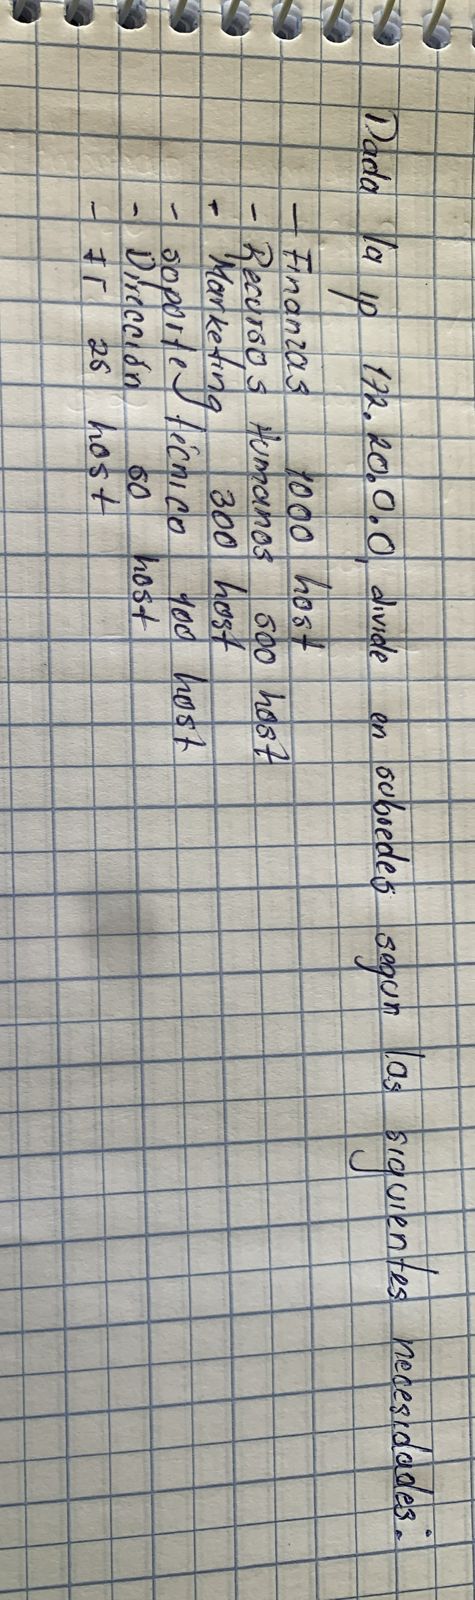 Dada la ip 172.20.0.0, divide en subredes segun las siguientes necesidades:
- Finanzas 1000 host
- Recursos Humanos 500 host
- Marketing 300 host
- soporte técnico 100 host
- Dirección 50 host
- IT 25 host